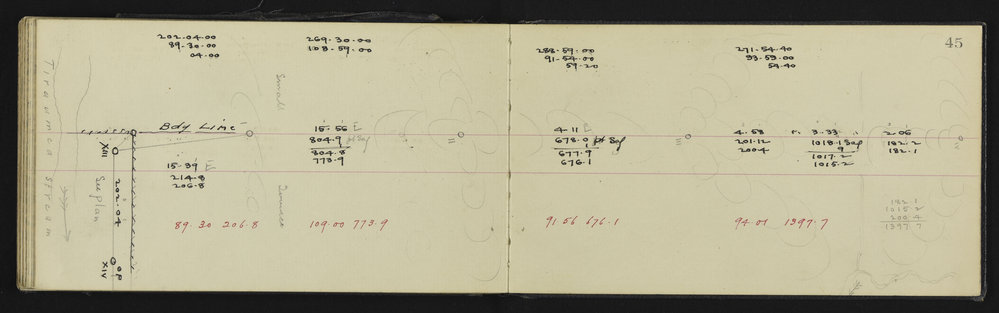 45
202.04.00
89.30.00
04.00
269.30.00
108.59.00
288.59.00
91.54.00
59.20
271.54.40
93.59.00
54.40
Tiraumea Stream
Small
Bdy Line
XIII
15-39
214.8
206.8
15-56
804.9
804.8
773.9
II
4-11
678.0
677.9
676.1
III
4-58
201.12
200.4
3-33
1018.1
9
1017.2
1015.2
2-06
182.2
182.1
IV
See plan
202.04
89.30 206.8
109.00 773.9
91.56 676.1
94.01 1397.7
182.1
1015.2
200.4
1397.7
XIV
OP